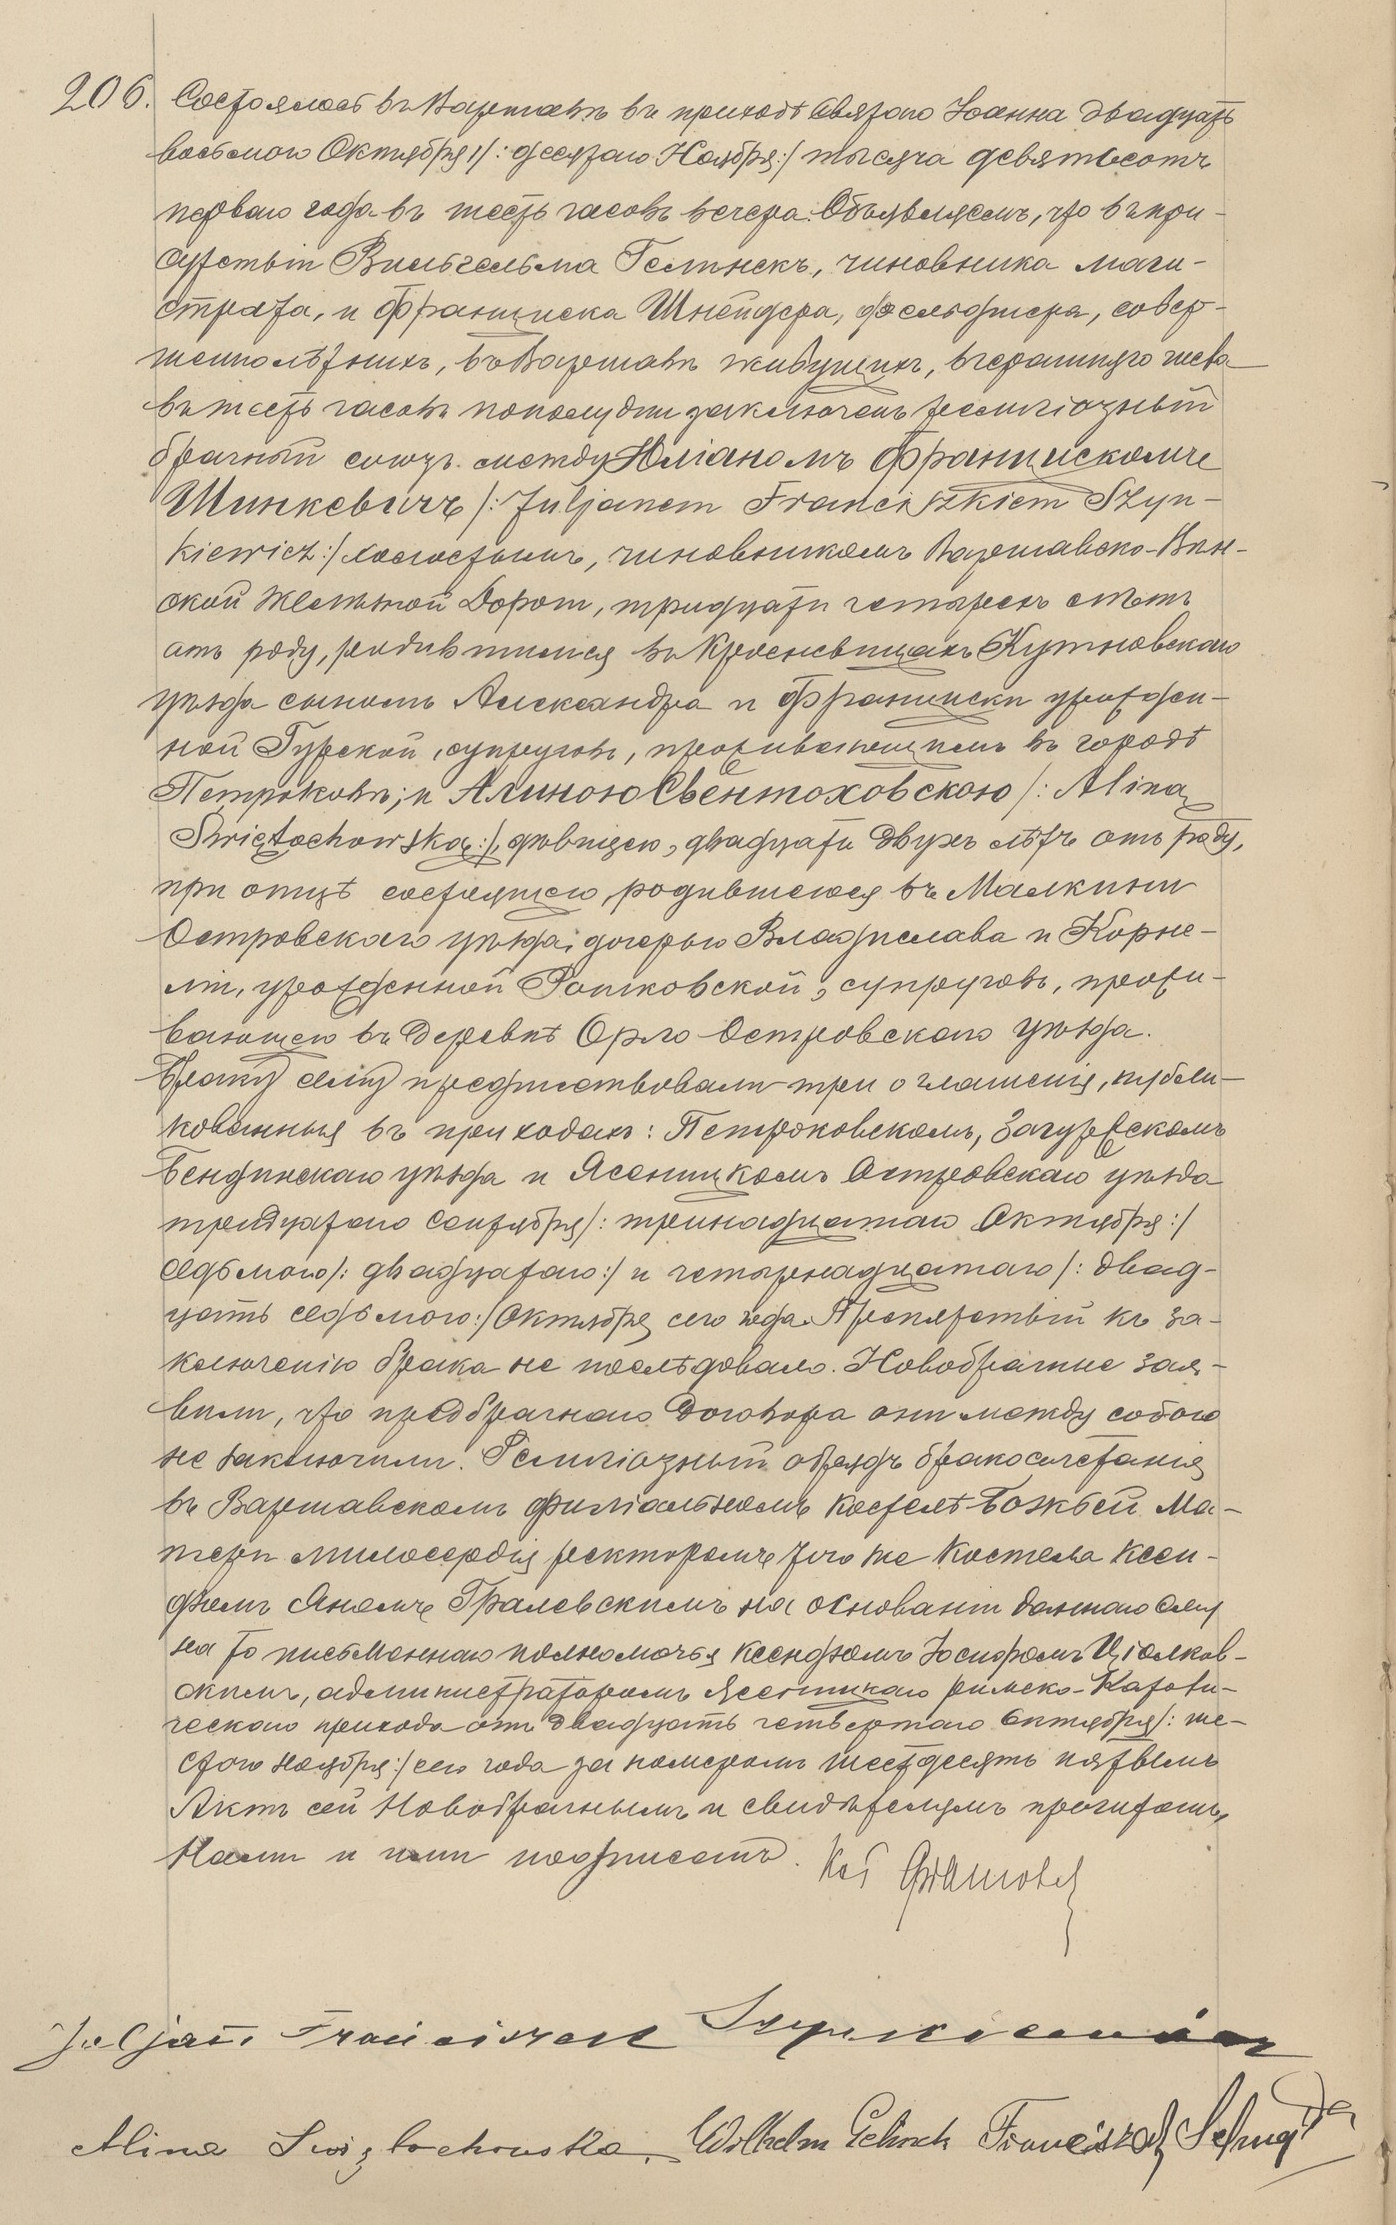 206. Состоялось въ Варшавѣ въ приходѣ Святого Іоанна двадцать
восьмого Октября /: десятаго Ноября :/ тысяча девятьсотъ
перваго года въ шесть часовъ вечера. Объявляемъ, что въ при-
сутствіи Вильгельма Гелинекъ, чиновника маги-
страта, и Франциска Шнейдера, фельдшера, совер-
шеннолѣтнихъ, въ Варшавѣ живущихъ, вчерашняго числа
въ шесть часовъ пополудни заключенъ религіозный
брачный союзъ между Юліаномъ Францискомъ
Шинкевичъ /: Juljanem Franciszkiem Szyn-
kiewicz :/ холостымъ, чиновникомъ Варшавско-Вѣн-
ской Желѣзной Дороги, тридцати четырехъ лѣтъ
отъ роду, родившимся въ Кросневицахъ Кутновскаго
уѣзда сыномъ Александра и Франциски урожден-
ной Гурской, супруговъ, проживающимъ въ городѣ
Петроковѣ; и Алиною Свентоховскою /: Aliną
Swiętochowską :/, дѣвицею, двадцати двухъ лѣтъ отъ роду,
при отцѣ состоящею, родившеюся въ Малкини
Островскаго уѣзда, дочерью Владислава и Корне-
ліи, урожденной Ратковской, супруговъ, прожи-
вающею въ деревнѣ Орло Островскаго уѣзда.
Браку сему предшествовали три оглашенія, публи-
кованныя въ приходахъ: Петроковскомъ, Загурскомъ
Бендинскаго уѣзда и Ясеницкомъ Островскаго уѣзда
тридцатаго Сентября /: тринадцатаго Октября :/
седьмого /: двадцатаго :/ и четырнадцатаго /: двад-
цать седьмого :/ Октября сего года. Препятствій къ за-
ключенію брака не послѣдовало. Новобрачные зая-
вили, что предбрачнаго договора они между собою
не заключили. Религіозный обрядъ бракосочетанія
въ Варшавскомъ филіальномъ костелѣ Божьей Ма-
тери Милосердія ректоромъ того же костела ксен-
дзомъ Яномъ Гралевскимъ на основаніи даннаго ему
на то письменнаго полномочья ксендзомъ Іосифомъ Ціолков-
скимъ, администраторомъ Ясеницкаго римско-Католи-
ческаго прихода отъ двадцать четвертаго Октября /: ше-
стого Ноября :/ сего года за номеромъ шестьдесятъ пятымъ
Актъ сей Новобрачнымъ и свидѣтелямъ прочитанъ,
Нами и ими подписанъ.
Juljan Franciszek Szynkiewicz
Alina Swiętochowska. Wilhelm Gelinek Franciszek Schnejder